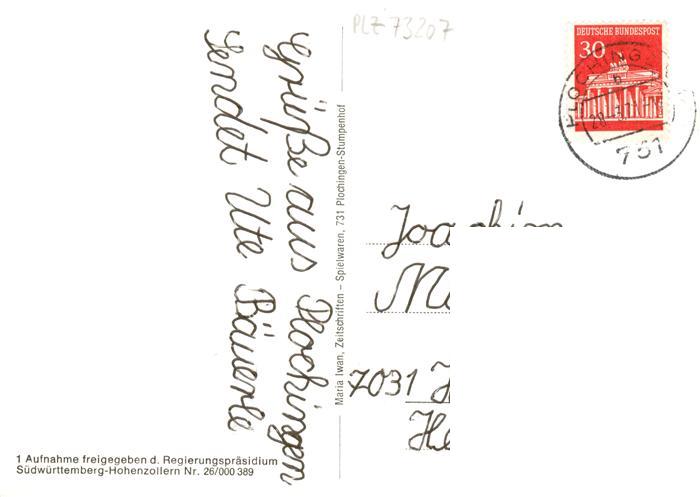 PLZ 73207
DEUTSCHE BUNDESPOST
30
PLOCHINGEN
b
731
Grüße aus Plochingen
sendet Ute Bäuerle
Maria Iwan, Zeitschriften – Spielwaren, 731 Plochingen-Stumpenhof
Joachim
7031
1 Aufnahme freigegeben d. Regierungspräsidium
Südwürttemberg-Hohenzollern Nr. 26/000 389